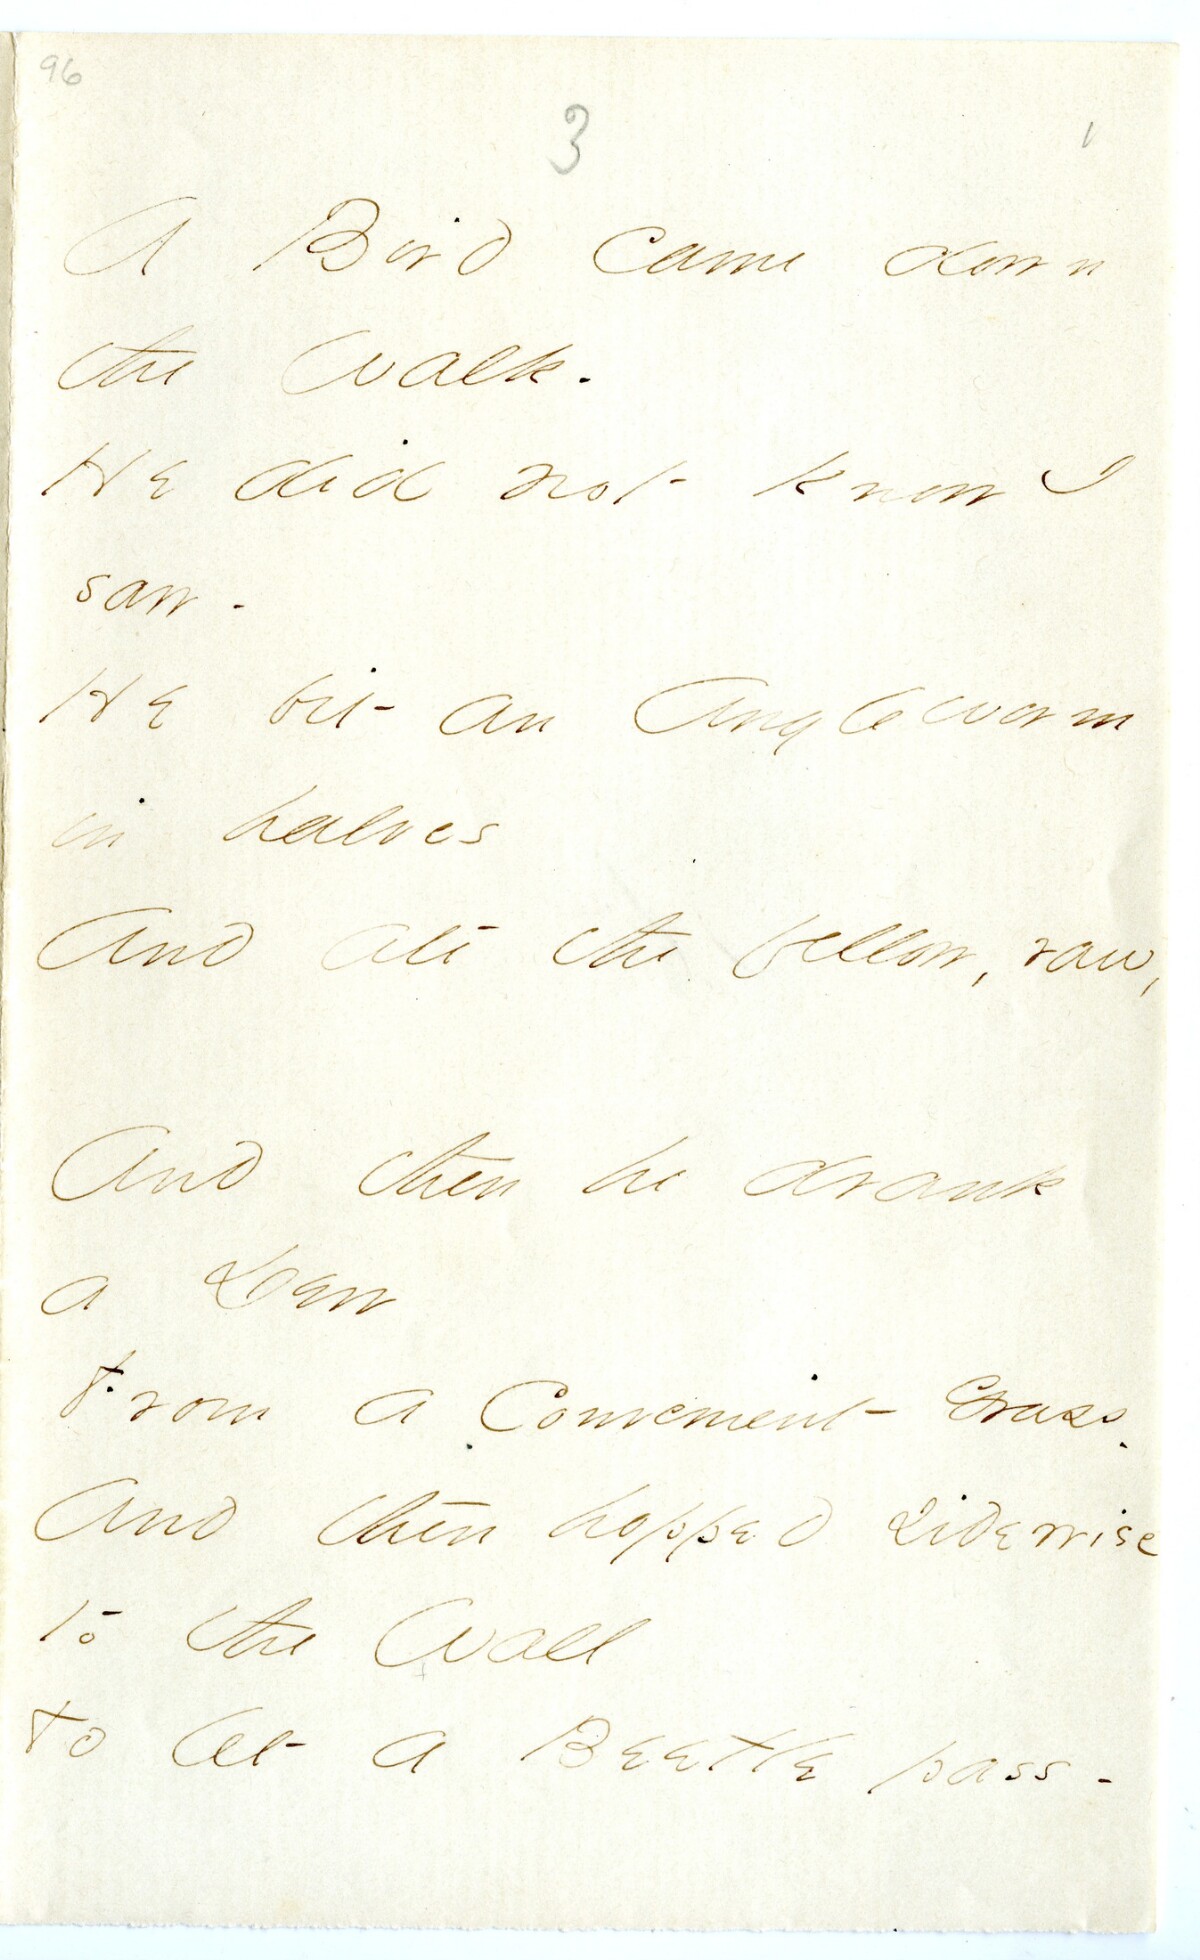 96
3
1
A Bird came down
the Walk.
He did not know I
saw -
He bit an Angleworm
in halves
And ate the fellow, raw,
And then he drank
a Dew
From a Convenient Grass.
And then hopped Sidewise
to the Wall
To let a Beetle pass -